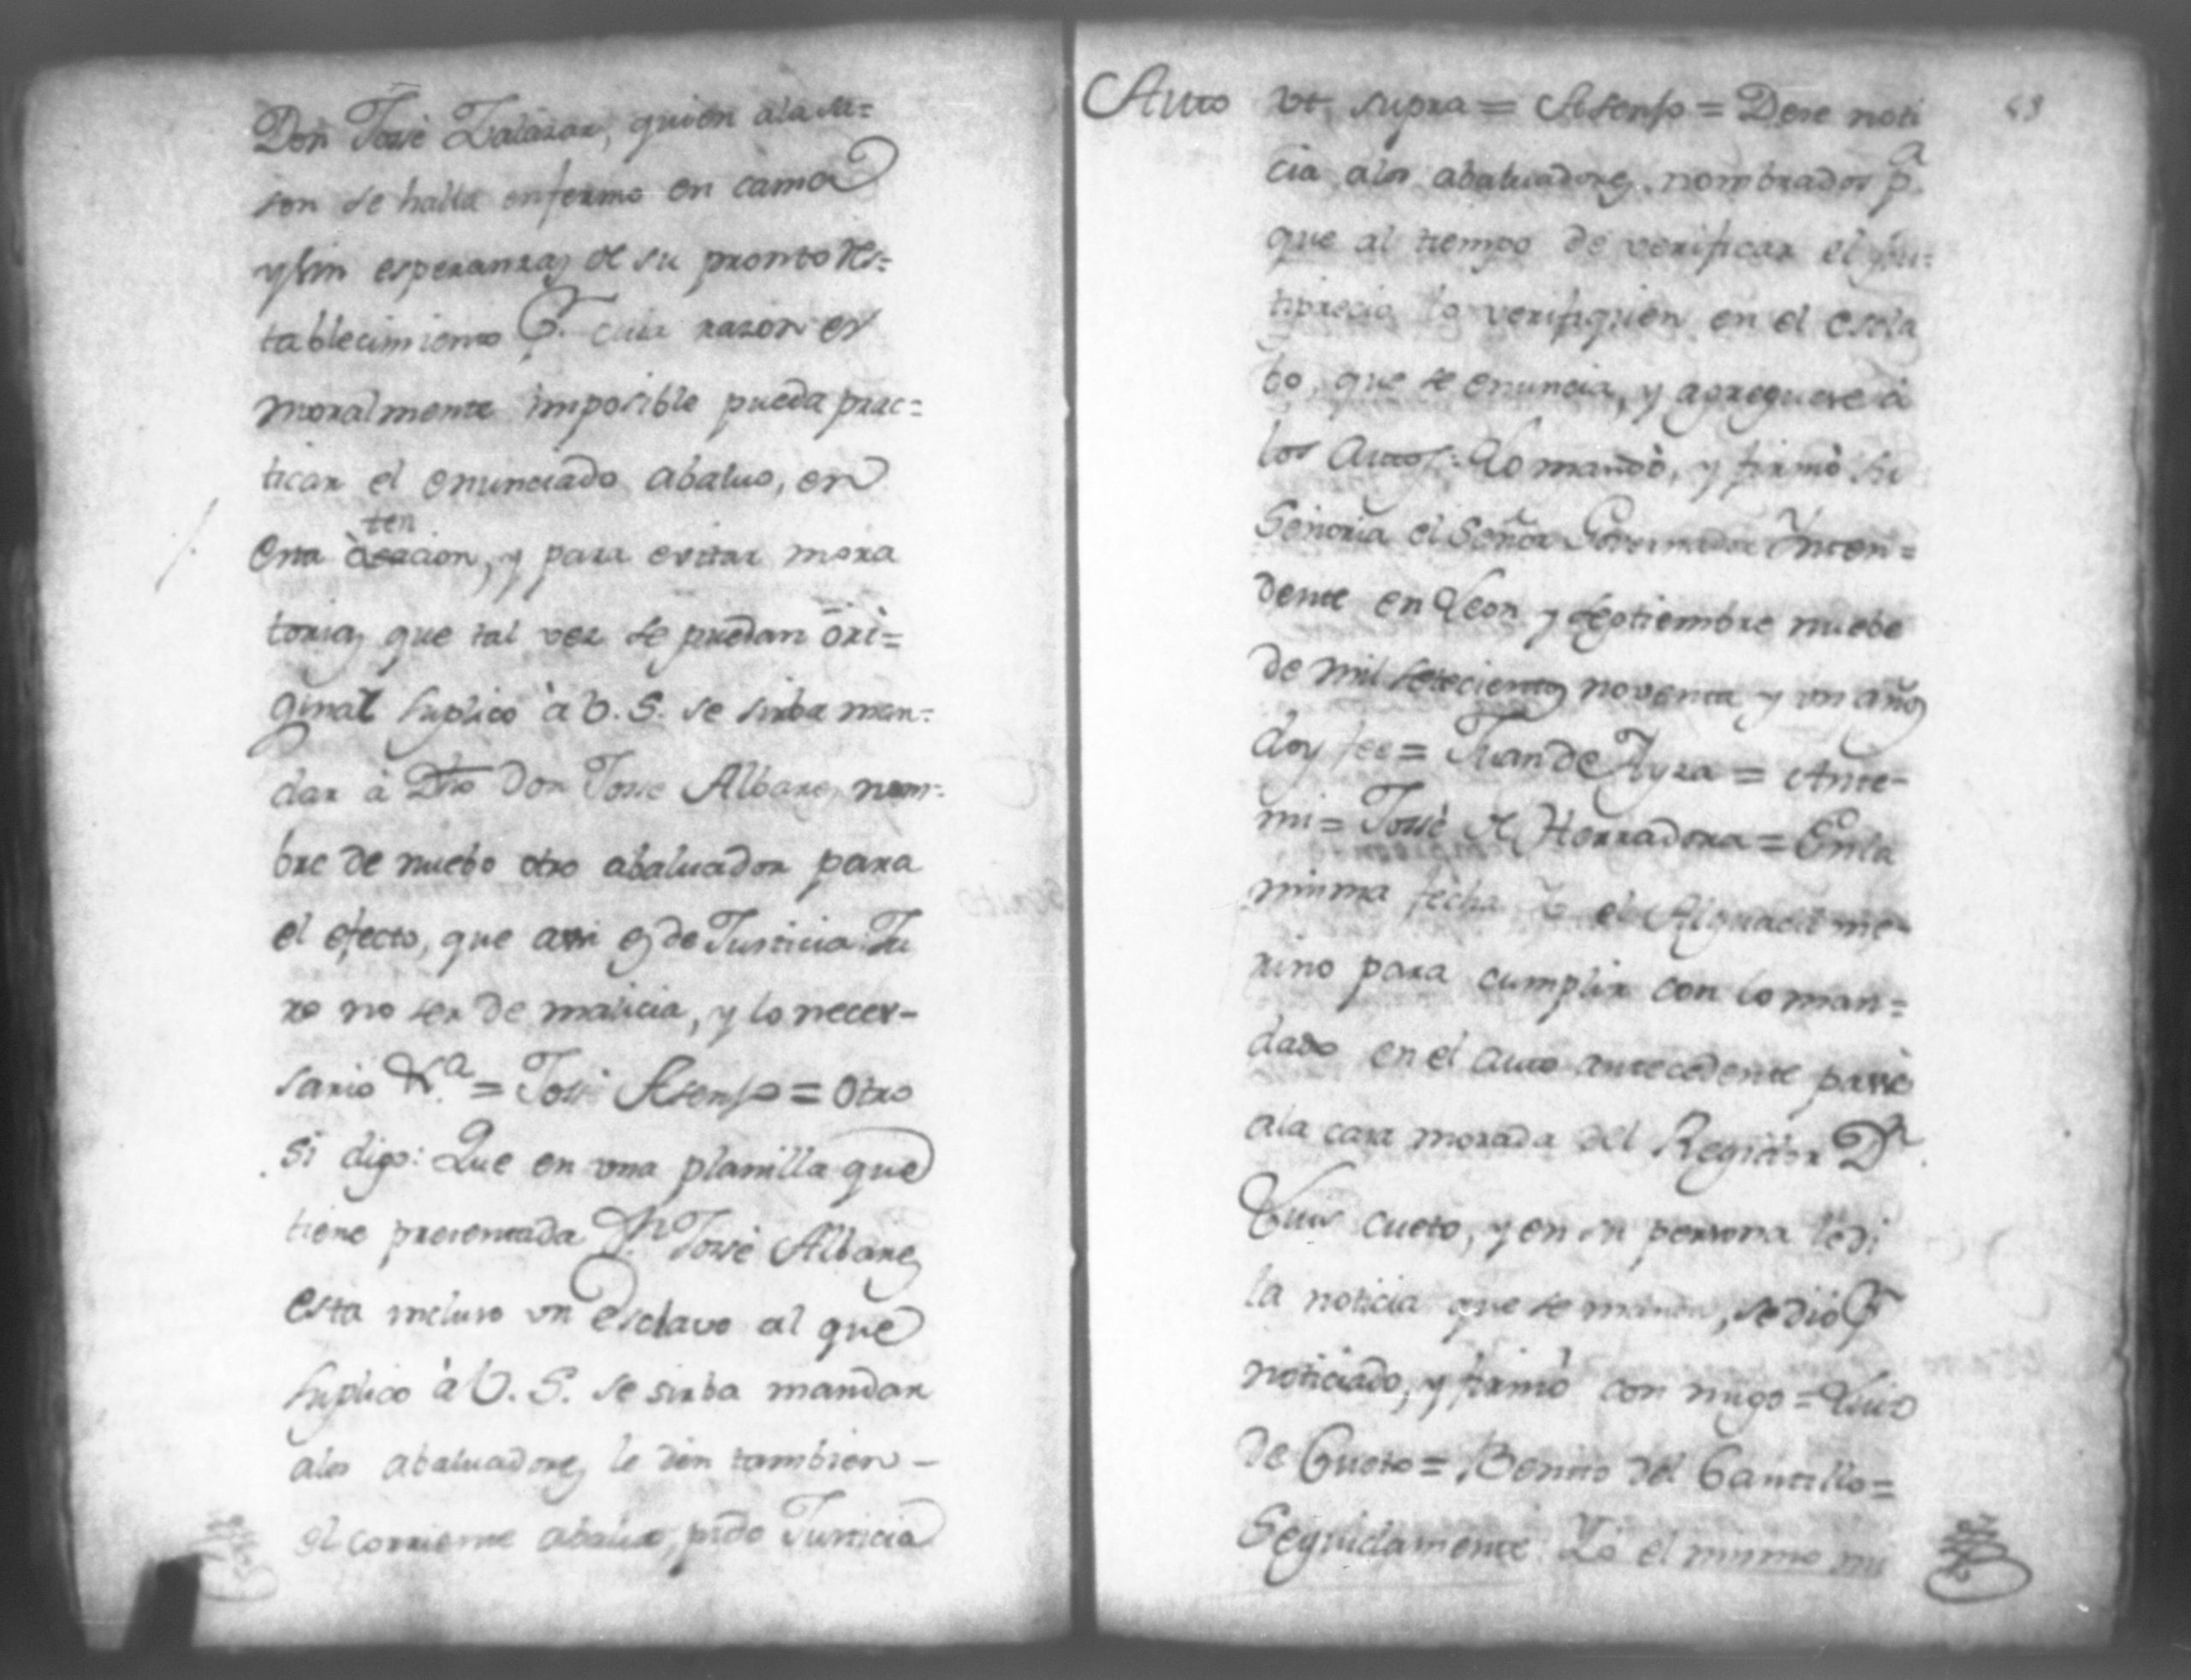 Don José Zalazar, quien ala sa=
son se halla enfermo en cama
y sin esperanzas de su pronto res=
tablecimiento P. cuia razon es
moralmente imposible pueda prac=
ticar el enunciado abaluo, en
ten
esta àcion, y para evitar mora
torias que tal vez se puedan ori=
ginal suplico à V. S. se sirba man=
dar à Dho Don Jose Albares nom=
bre de nuebo otro abaluador para
el efecto, que assi es de Justicia Ju
ro no ser de malicia, y lo neces-
sario &.a = José Asenso = Otro
si digo: Que en una planilla que
tiene presentada D.n José Albares
esta incluso un Esclavo al que
suplico à V. S. se sirba mandar
alos abaluadores le den tambien -
el corriente abaluo, pido Justicia
Auto ut supra = Asenso = Dese noti 68
cia alos abaluadores nombrados p.a
que al tiempo de verificar el jus=
tiprecio lo verifiquen en el escla
bo, que se enuncia, y agreguese à
los Autos: Lo mandò, y firmò su
Señoria el Señor Governador Inten=
dente en Leon y Septiembre nuebe
de mil setecientos noventa y un años
doy fee = Juan de Ayza = Ante-
mi = José de Herradora = En la
misma fecha Yo el Alguacil me-
rino para cumplir con lo man=
dado en el auto antecedente passé
ala casa morada del Regidor D.n
Luis Cueto, y en su persona le di
la noticia que se manda, se dió P
noticiado, y firmò con migo = Luis
de Cueto = Benito del Cantillo =
Seguidamente Yo el mismo mi